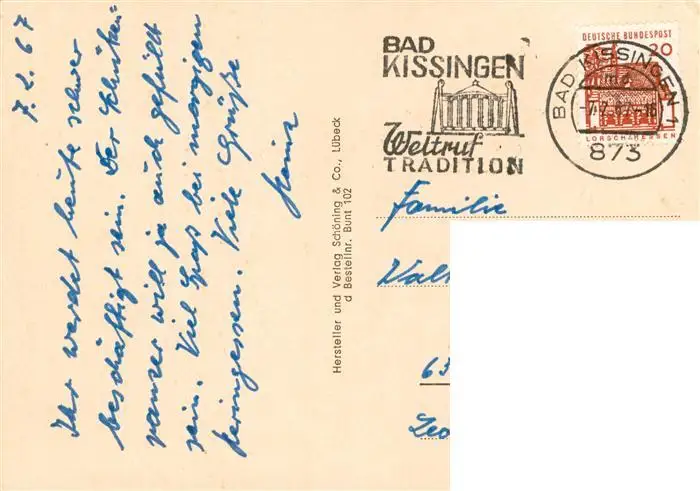 7.2.67
Ihr werdet heute schwer
beschäftigt sein. Der Schüken=
ranzer will ja auch gefüllt
sein. Viel Spaß bei morgigen
heringessen. Viele Grüße
Heinz
Hersteller und Verlag Schöning & Co., Lübeck
d Bestellnr. Bunt 102
BAD
KISSINGEN
Weltruf
TRADITION
DEUTSCHE BUNDESPOST
20
LORSCH/HESSEN
BAD KISSINGEN 1
873
Familie